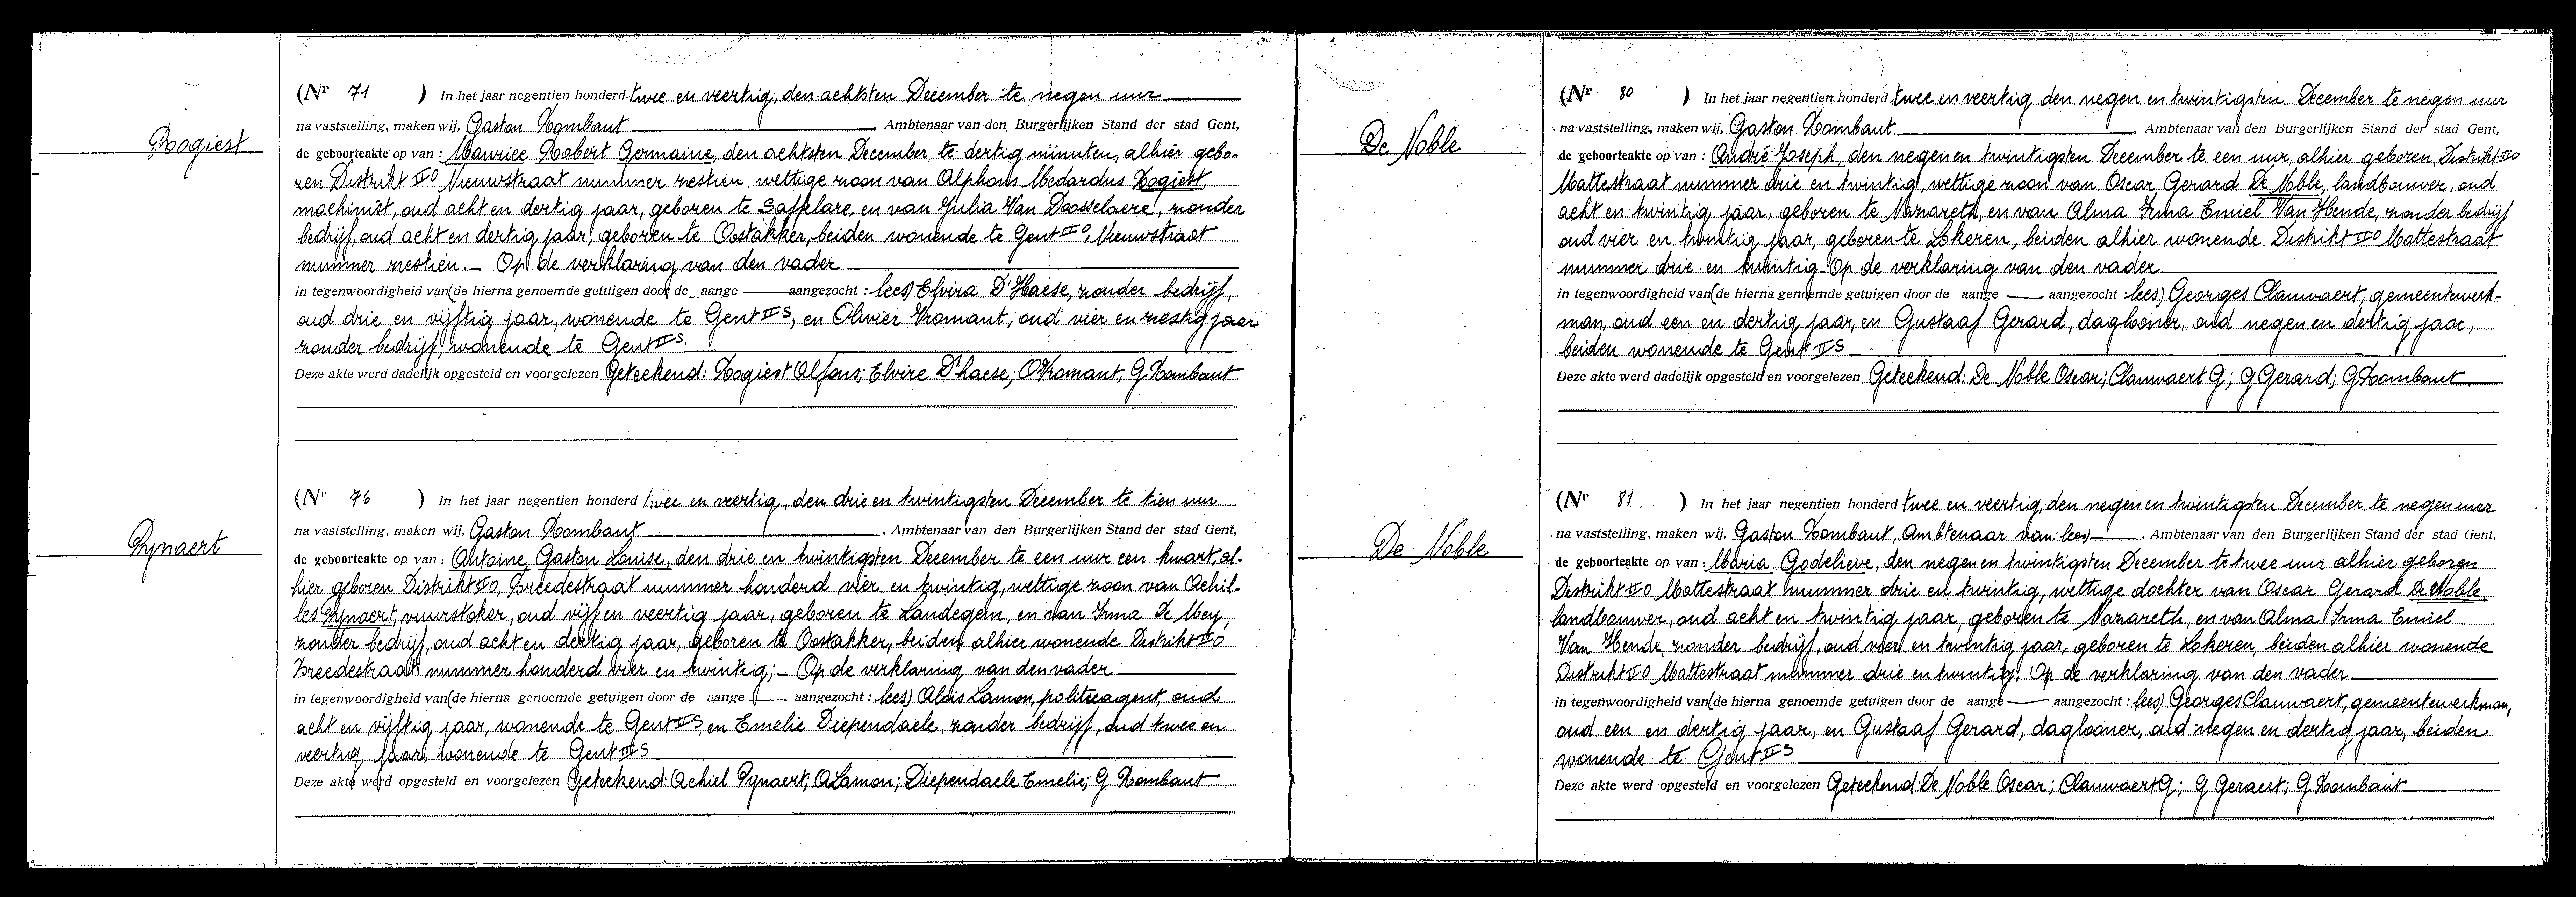 Rogiest
(Nr 71 ) In het jaar negentien honderd twee en veertig, den achtsten December te negen uur
na vaststelling, maken wij, Gaston Rombaut, Ambtenaar van den Burgerlijken Stand der stad Gent,
de geboorteakte op van : Maurice Robert Germaine, den achtsten December te dertig minuten, alhier gebo-
ren Distrikt II O Nieuwstraat nummer zestien, wettige zoon van Alphons Medardus Rogiest,
machinist, oud acht en dertig jaar, geboren te Saffelare, en van Julia Van Doosselaere, zonder
bedrijf, oud acht en dertig jaar, geboren te Oostakker, beiden wonende te Gent II O, Nieuwstraat
nummer zestien.- Op de verklaring van den vader
in tegenwoordigheid van (de hierna genoemde getuigen door de aange — aangezocht : lees) Elvira D'Haese, zonder bedrijf,
oud drie en vijftig jaar, wonende te Gent II S, en Olivier Vromant, oud vier en zestig jaar
zonder bedrijf, wonende te Gent II S.
Deze akte werd dadelijk opgesteld en voorgelezen Geteekend: Rogiest Alfons; Elvire D'haese; O Vromant; G Rombaut
Rynaert
(Nr 76 ) In het jaar negentien honderd twee en veertig, den drie en twintigsten December te tien uur
na vaststelling, maken wij, Gaston Rombaut, Ambtenaar van den Burgerlijken Stand der stad Gent,
de geboorteakte op van : Antoine Gaston Louise, den drie en twintigsten December te een uur een kwart, al-
hier geboren Distrikt II O, Breedestraat nummer honderd vier en twintig, wettige zoon van Achil-
les Rynaert, vuurstoker, oud vijf en veertig jaar, geboren te Landegem, en van Irma De Mey,
zonder bedrijf, oud acht en dertig jaar, geboren te Oostakker, beiden alhier wonende Distrikt II O
Breedestraat nummer honderd vier en twintig;- Op de verklaring van den vader
in tegenwoordigheid van (de hierna genoemde getuigen door de aange — aangezocht : lees) Aloïs Lamon, politieagent, oud
acht en vijftig jaar, wonende te Gent II S, en Emelie Diependaele, zonder bedrijf, oud twee en
veertig jaar, wonende te Gent II S
Deze akte werd opgesteld en voorgelezen Geteekend: Achiel Rynaert; A Lamon; Diependaele Emelie; G Rombaut
De Noble
(Nr 80 ) In het jaar negentien honderd twee en veertig den negen en twintigsten December te negen uur
na vaststelling, maken wij, Gaston Rombaut, Ambtenaar van den Burgerlijken Stand der stad Gent,
de geboorteakte op van : André Joseph, den negen en twintigsten December te een uur, alhier geboren, Distrikt II O
Mattestraat nummer drie en twintig, wettige zoon van Oscar Gerard De Noble, landbouwer, oud
acht en twintig jaar, geboren te Nazareth, en van Alma Irma Emiel Van Hende, zonder bedrijf
oud vier en twintig jaar, geboren te Lokeren, beiden alhier wonende Distrikt II O Mattestraat
nummer drie en twintig- Op de verklaring van den vader
in tegenwoordigheid van (de hierna genoemde getuigen door de aange — aangezocht : lees) Georges Clauwaert, gemeentewerk-
man, oud een en dertig jaar, en Gustaaf Gerard, dagloner, oud negen en dertig jaar,
beiden wonende te Gent II S
Deze akte werd dadelijk opgesteld en voorgelezen Geteekend: De Noble Oscar; Clauwaert G; G Gerard; G Rombaut.
De Noble
(Nr 81 ) In het jaar negentien honderd twee en veertig, den negen en twintigsten December te negen uur
na vaststelling, maken wij, Gaston Rombaut, Ambtenaar van: lees), Ambtenaar van den Burgerlijken Stand der stad Gent,
de geboorteakte op van : Maria Godelieve, den negen en twintigsten December te twee uur alhier geboren
Distrikt II O Mattestraat nummer drie en twintig, wettige dochter van Oscar Gerard De Noble,
landbouwer, oud acht en twintig jaar, geboren te Nazareth, en van Alma Irma Emiel
Van Hende, zonder bedrijf, oud vier en twintig jaar, geboren te Lokeren, beiden alhier wonende
Distrikt II O Mattestraat nummer drie en twintig; Op de verklaring van den vader.
in tegenwoordigheid van (de hierna genoemde getuigen door de aange — aangezocht : lees) Georges Clauwaert, gemeentewerkman,
oud een en dertig jaar, en Gustaaf Gerard, dagloner, oud negen en dertig jaar, beiden
wonende te Gent II S
Deze akte werd opgesteld en voorgelezen Geteekend: De Noble Oscar; Clauwaert G; G Geraert; G Rombaut